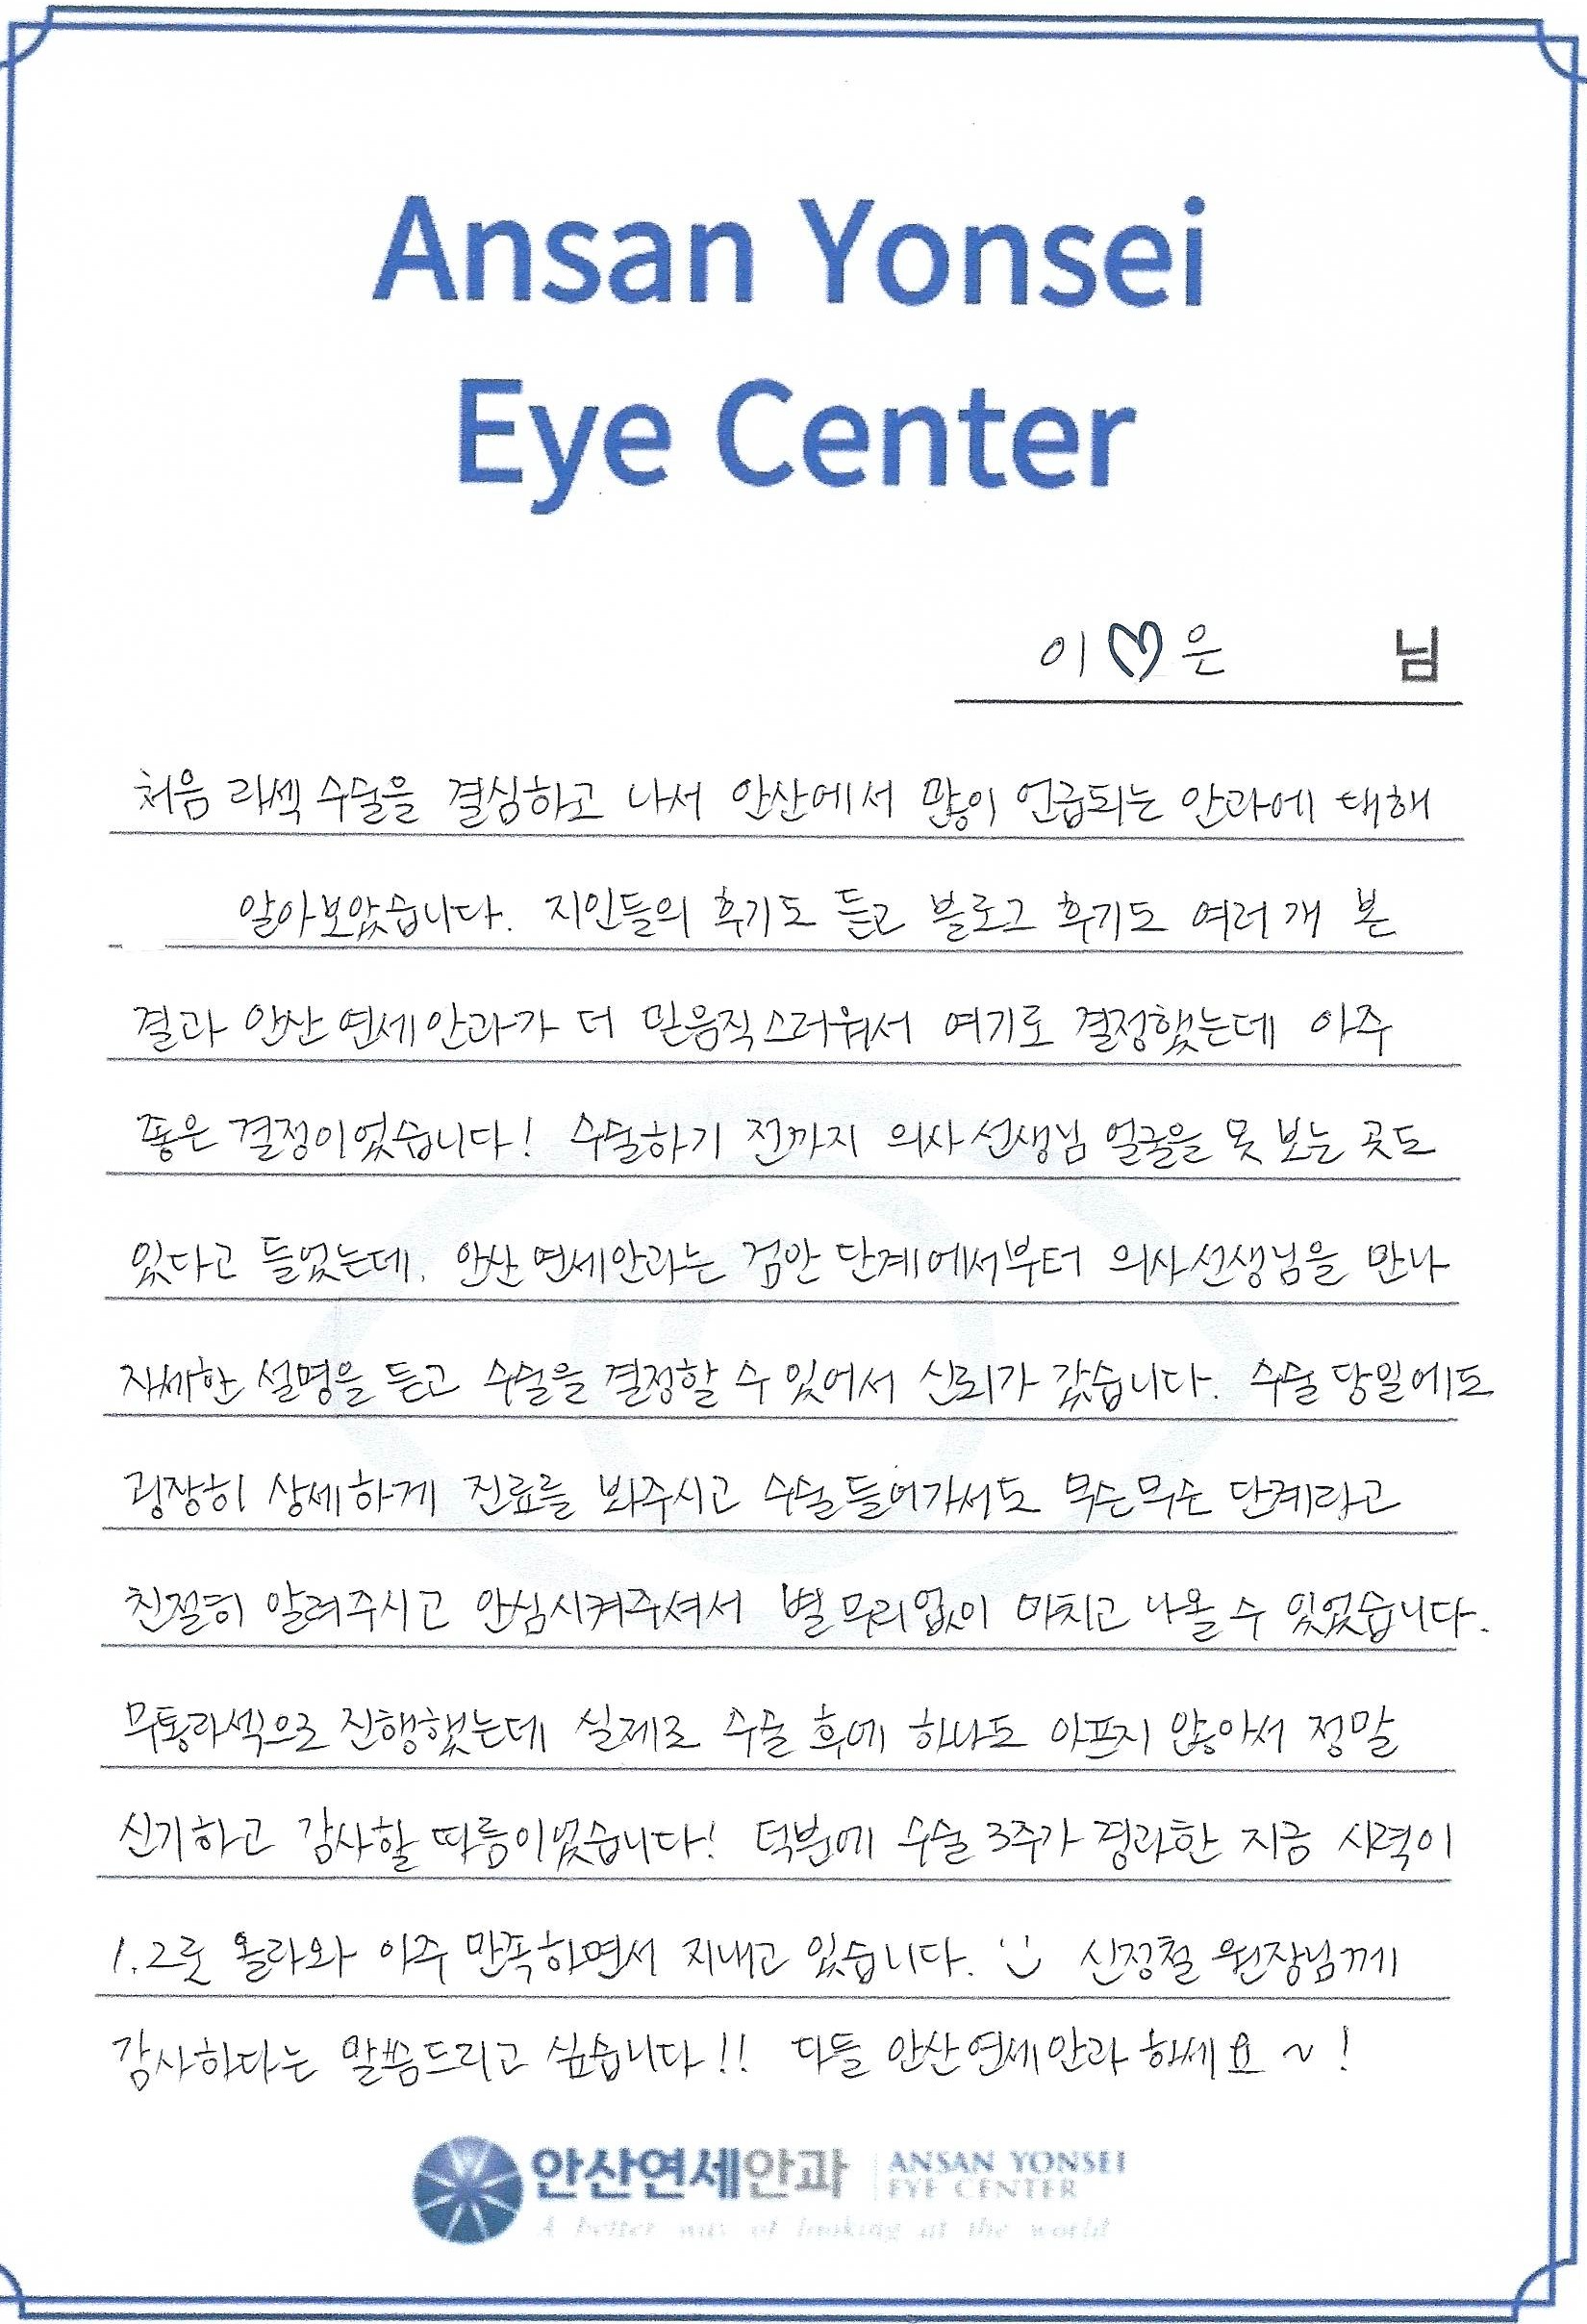 Ansan Yonsei
Eye Center
이♡은 님
처음 라섹 수술을 결심하고 나서 안산에서 많이 언급되는 안과에 대해
알아보았습니다. 지인들의 후기도 듣고 블로그 후기도 여러 개 본
결과 안산 연세안과가 더 믿음직스러워서 여기로 결정했는데 아주
좋은 결정이었습니다! 수술하기 전까지 의사 선생님 얼굴을 못 보는 곳도
있다고 들었는데, 안산 연세안과는 검안 단계에서부터 의사 선생님을 만나
자세한 설명을 듣고 수술을 결정할 수 있어서 신뢰가 갔습니다. 수술 당일에도
굉장히 상세하게 진료를 봐주시고 수술 들어가서도 무슨무슨 단계라고
친절히 알려주시고 안심시켜주셔서 별 무리없이 마치고 나올 수 있었습니다.
무통라섹으로 진행했는데 실제로 수술 후에 하나도 아프지 않아서 정말
신기하고 감사할 따름이었습니다! 덕분에 수술 3주가 경과한 지금 시력이
1.2로 올라와 아주 만족하면서 지내고 있습니다. :) 신정철 원장님께
감사하다는 말씀드리고 싶습니다!! 다들 안산연세안과 하세요~!
안산연세안과 ANSAN YONSEI
EYE CENTER
A better way of looking at the world